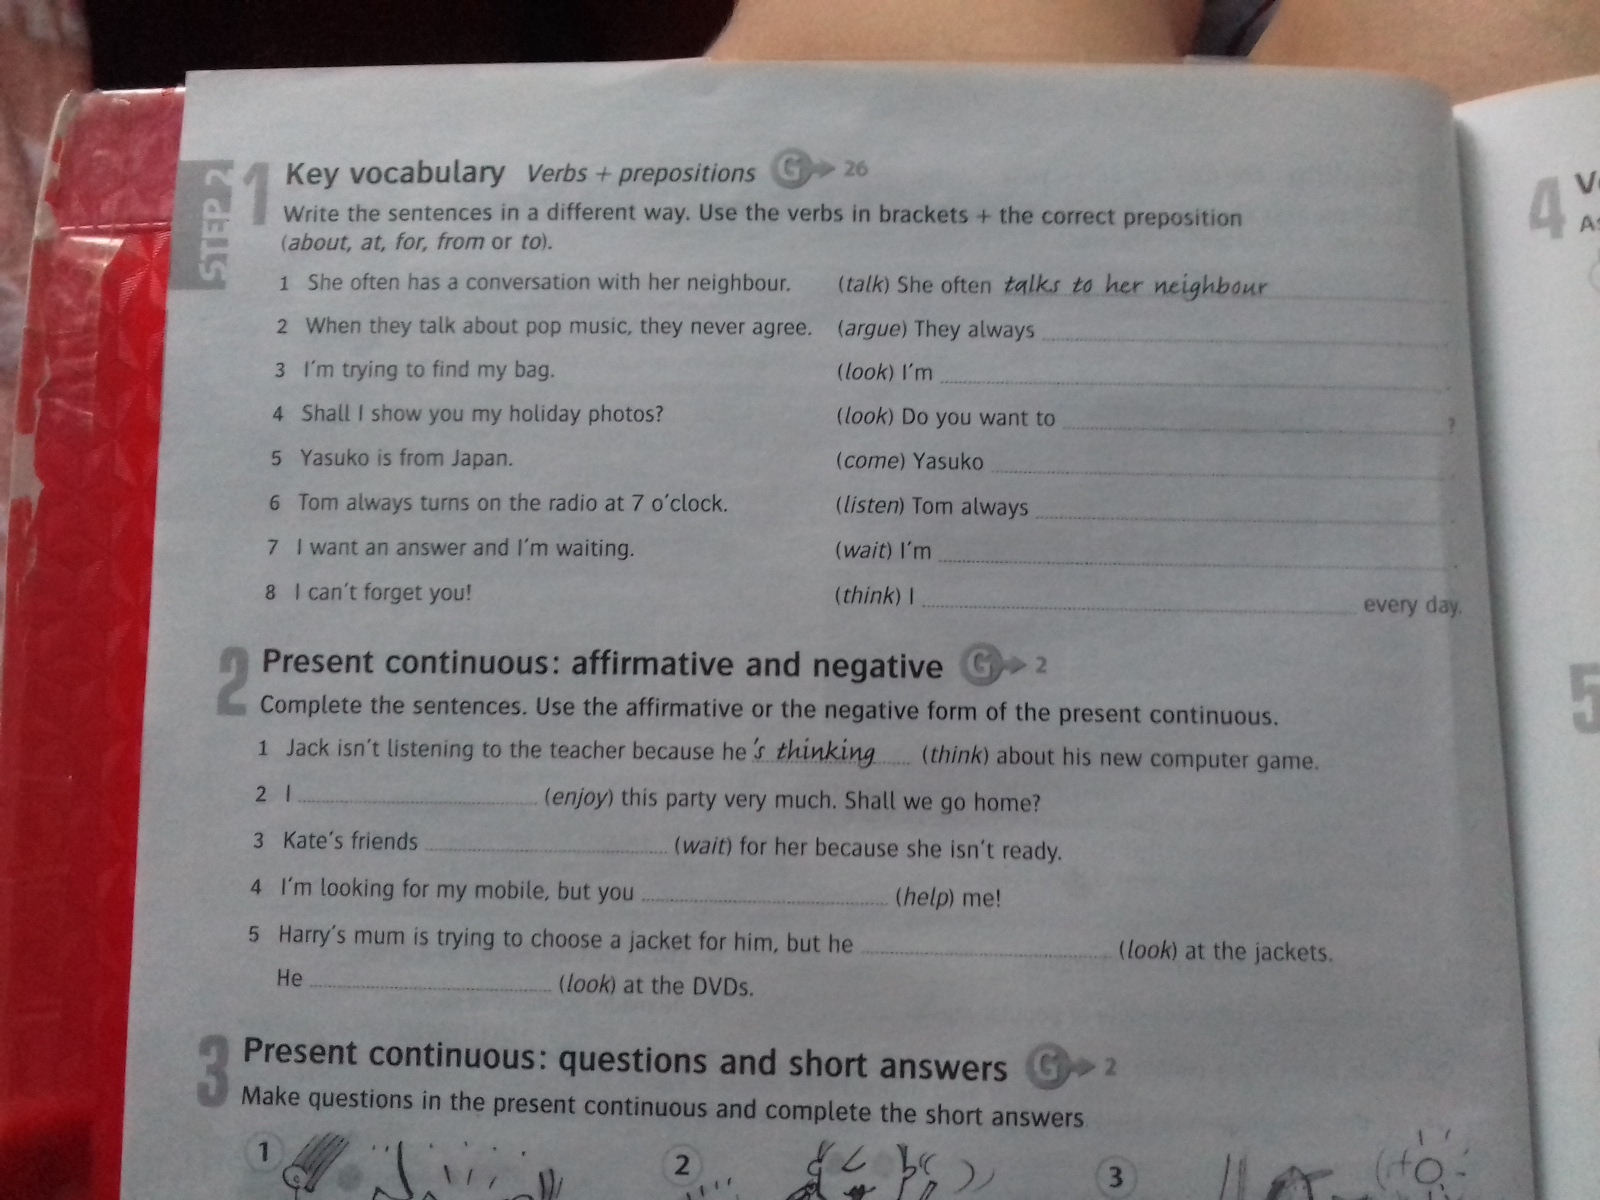 STEP 2
1 Key vocabulary Verbs + prepositions G 26
Write the sentences in a different way. Use the verbs in brackets + the correct preposition
(about, at, for, from or to).
1 She often has a conversation with her neighbour. (talk) She often talks to her neighbour
2 When they talk about pop music, they never agree. (argue) They always
3 I'm trying to find my bag. (look) I'm
4 Shall I show you my holiday photos? (look) Do you want to ?
5 Yasuko is from Japan. (come) Yasuko
6 Tom always turns on the radio at 7 o'clock. (listen) Tom always
7 I want an answer and I'm waiting. (wait) I'm
8 I can't forget you! (think) I every day.
2 Present continuous: affirmative and negative G 2
Complete the sentences. Use the affirmative or the negative form of the present continuous.
1 Jack isn't listening to the teacher because he 's thinking (think) about his new computer game.
2 I (enjoy) this party very much. Shall we go home?
3 Kate's friends (wait) for her because she isn't ready.
4 I'm looking for my mobile, but you (help) me!
5 Harry's mum is trying to choose a jacket for him, but he (look) at the jackets.
He (look) at the DVDs.
3 Present continuous: questions and short answers G 2
Make questions in the present continuous and complete the short answers
1 2 3
4
5